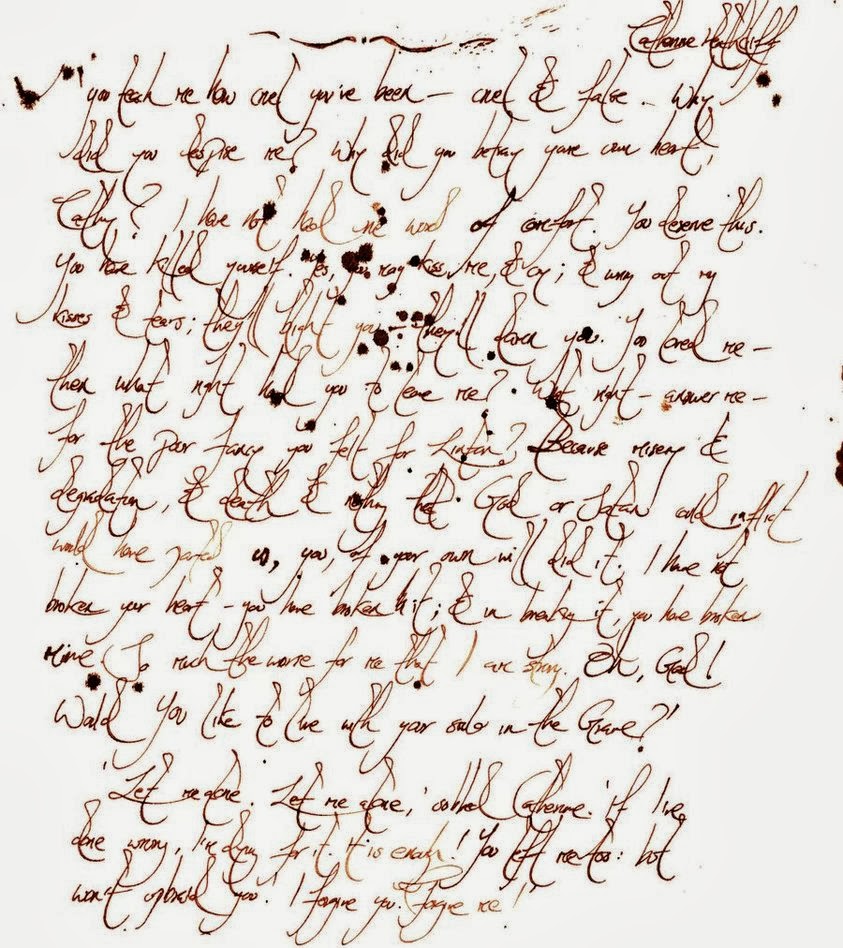 Catherine Heathcliff
'You teach me how cruel you've been – cruel & false. Why
did you despise me? Why did you betray your own heart,
Cathy? I have not had one word of comfort. You deserve this.
You have killed yourself. Yes, you may kiss me, & cry; & wring out my
kisses & tears; they'll blight you – they'll damn you. You loved me –
then what right had you to leave me? What right – answer me –
for the poor fancy you felt for Linton? Because misery &
degradation, & death & nothing that God or Satan could inflict
would have parted us, you, of your own will did it. I have not
broken your heart – you have broken it; & in breaking it, you have broken
mine. So much the worse for me that I am strong. Oh, God!
Would you like to live with your soul in the Grave?'
'Let me alone. Let me alone,' sobbed Catherine. 'If I've
done wrong, I'm dying for it. It is enough! You left me too: but
won't upbraid you! I forgive you. Forgive me!'